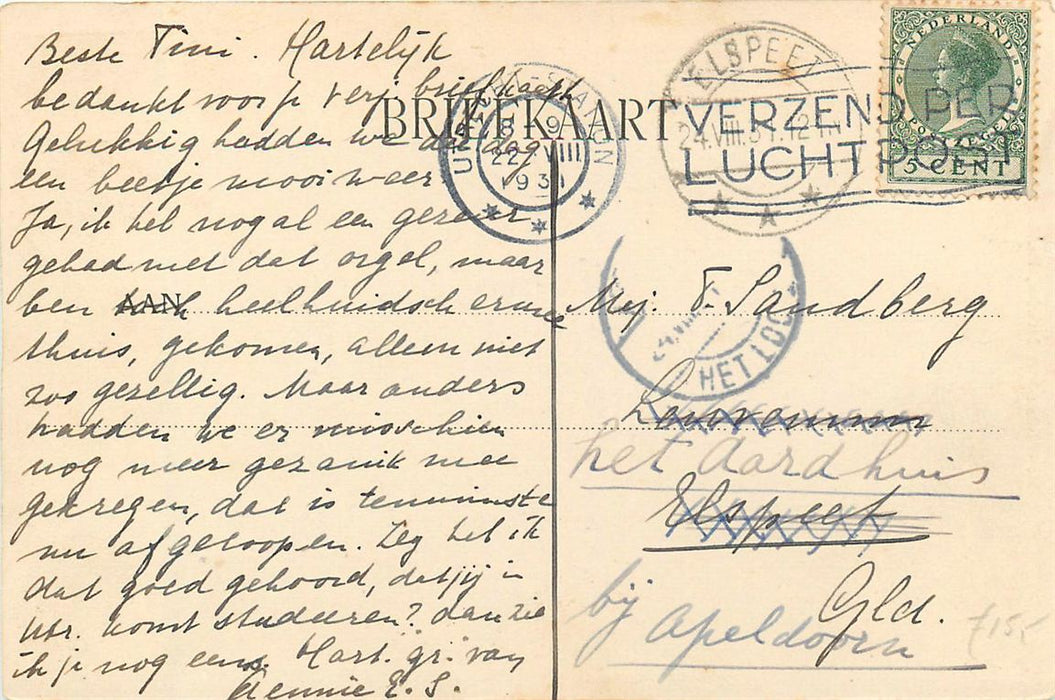 Beste Tini. Hartelijk
bedankt voor je verj. briefkaart
Gelukkig hadden we die dag
een beetje mooi weer
Ja, ik heb nog al een gezeur
gehad met dat orgel, maar
ben toch heelhuids er mee
thuis, gekomen, alleen niet
zoo gezellig. Maar anders
hadden we er misschien
nog meer gezanik mee
gekregen, dat is tenminste
nu afgeloopen. Zeg heb ik
dat goed gehoord, dat jij in
Utr. komt studeeren? dan zie
ik je nog eens. Hart. gr. van
Aennie E. S.
BRIEFKAART
AAN
UTRECHT-STATION
22 VIII
193
ELSPEET
24.VIII.31.12
VERZEND PER
LUCHTPOST
NEDERLAND
POSTZEGEL
5 CENT
HET LOO
24.VIII
Mej. T. Sandberg
Leuvenum
het Aardhuis
Elspeet
Gld.
bij Apeldoorn
f15,-